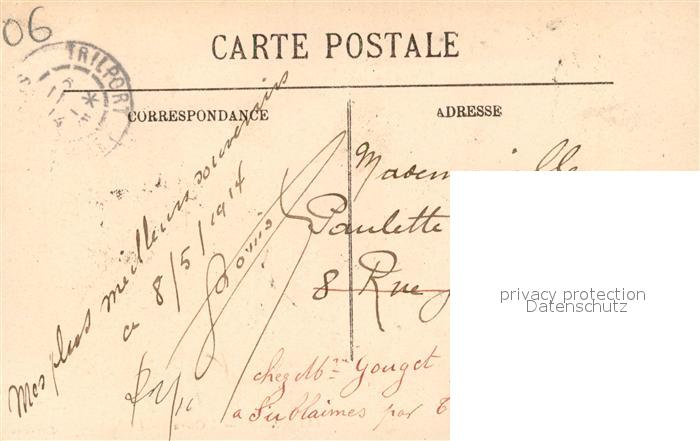 06
TRILPORT
14
CARTE POSTALE
CORRESPONDANCE
ADRESSE
Mes plus meilleurs souvenirs
ce 8/5/1914
Mademoiselle
Paulette
8 Rue
chez Mme Gouget
a par
privacy protection
Datenschutz